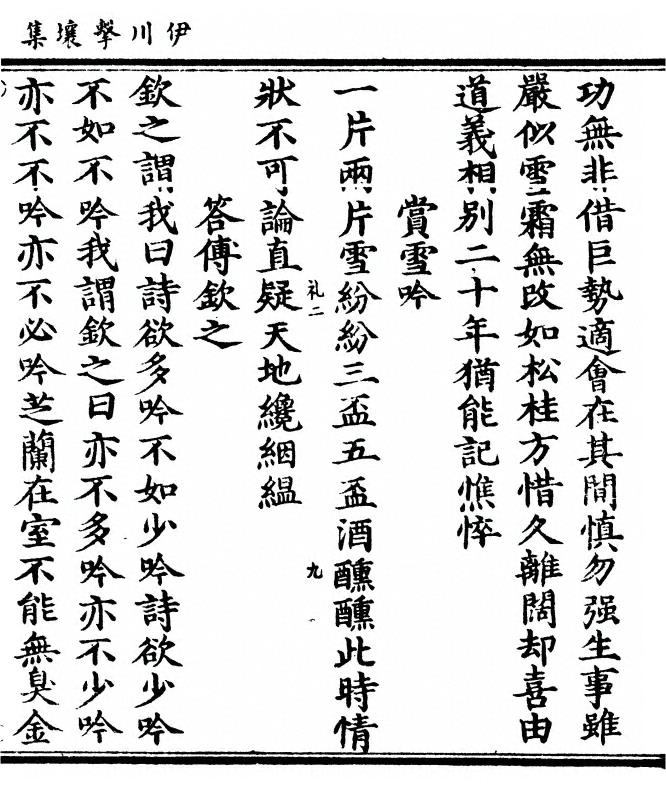 伊川擊壤集
功無非借巨勢適會在其間慎勿强生事雖
嚴似雪霜無改如松桂方惜久離闊却喜由
道義相別二十年猶能記憔悴
賞雪吟
一片兩片雪紛紛三盃五盃酒醺醺此時情
狀不可論直疑天地纔絪緼
礼二
九
答傅欽之
欽之謂我曰詩欲多吟不如少吟詩欲少吟
不如不吟我謂欽之曰亦不多吟亦不少吟
亦不不吟亦不必吟芝蘭在室不能無臭金